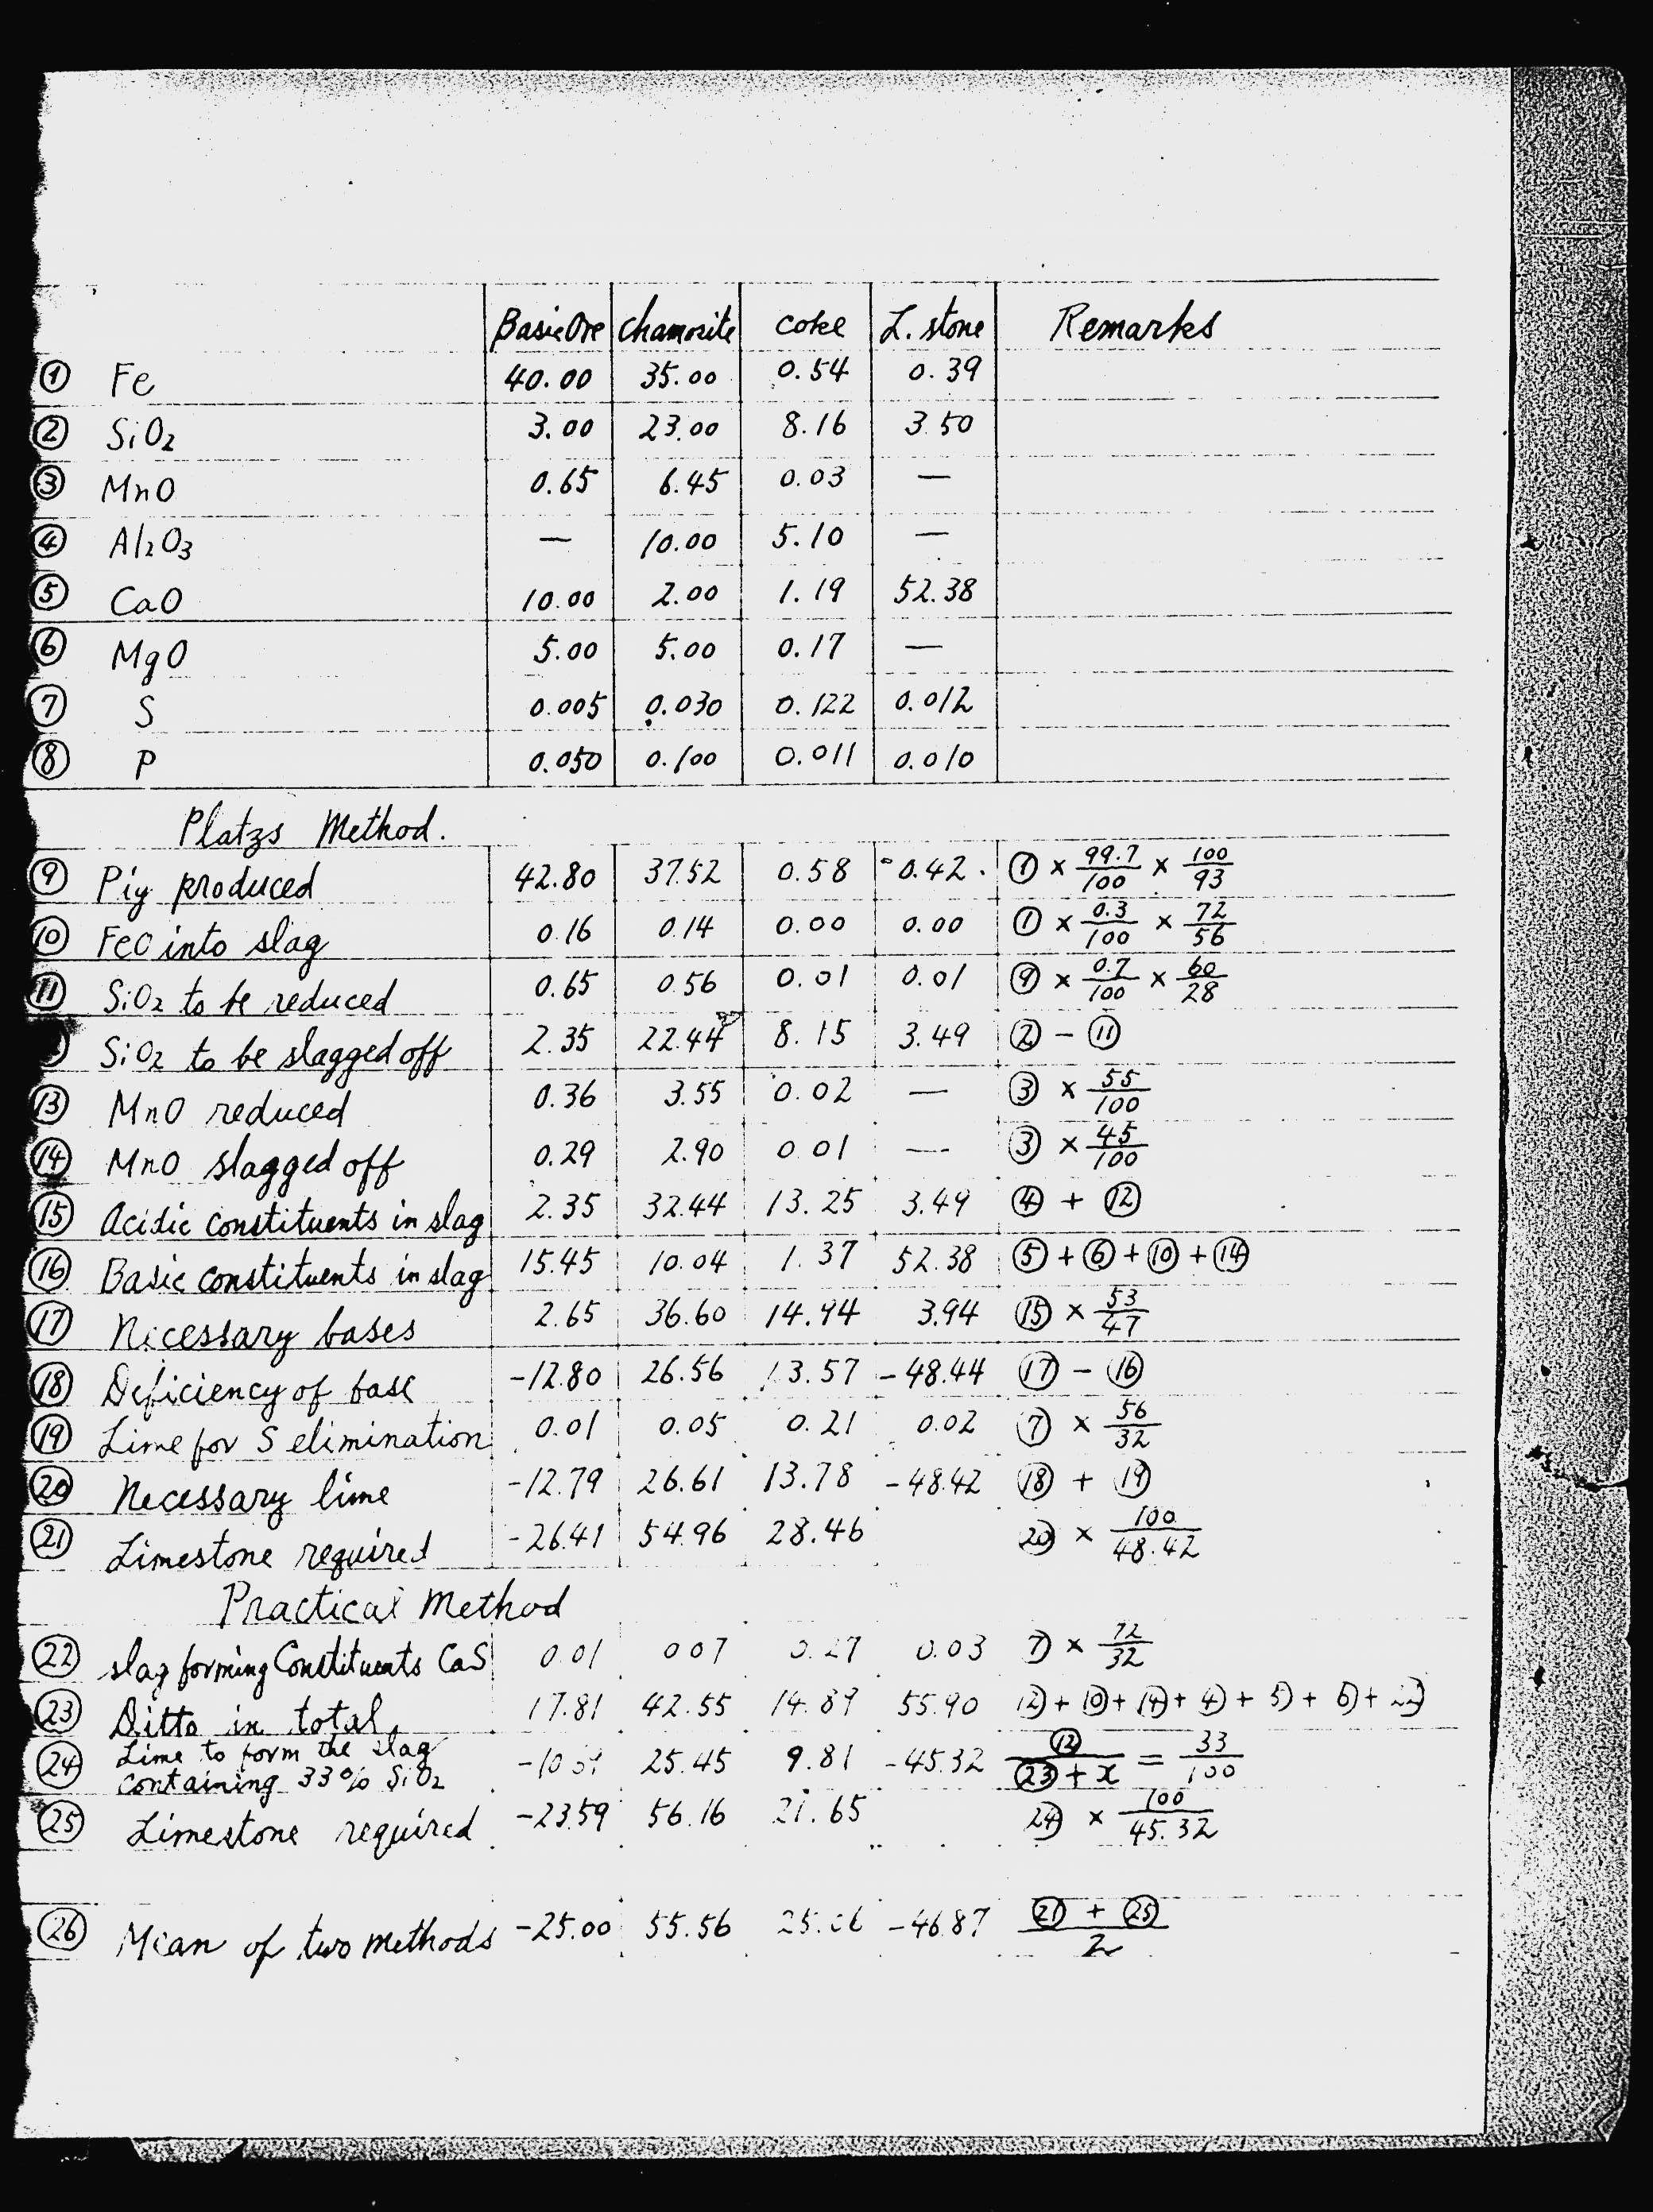 Basic Ore chamosite coke L. stone Remarks
① Fe 40.00 35.00 0.54 0.39
② SiO2 3.00 23.00 8.16 3.50
③ MnO 0.65 6.45 0.03 —
④ Al2O3 — 10.00 5.10 —
⑤ CaO 10.00 2.00 1.19 52.38
⑥ MgO 5.00 5.00 0.17 —
⑦ S 0.005 0.030 0.122 0.012
⑧ P 0.050 0.100 0.011 0.010
Platzs Method.
⑨ Pig produced 42.80 37.52 0.58 0.42 ① × 99.7/100 × 100/93
⑩ FeO into slag 0.16 0.14 0.00 0.00 ① × 0.3/100 × 72/56
⑪ SiO2 to be reduced 0.65 0.56 0.01 0.01 ⑨ × 0.7/100 × 60/28
SiO2 to be slagged off 2.35 22.44 8.15 3.49 ② - ⑪
⑬ MnO reduced 0.36 3.55 0.02 — ③ × 55/100
⑭ MnO slagged off 0.29 2.90 0.01 — ③ × 45/100
⑮ Acidic constituents in slag 2.35 32.44 13.25 3.49 ④ + ⑫
⑯ Basic constituents in slag 15.45 10.04 1.37 52.38 ⑤ + ⑥ + ⑩ + ⑭
⑰ Necessary bases 2.65 36.60 14.94 3.94 ⑮ × 53/47
⑱ Deficiency of base -12.80 26.56 13.57 -48.44 ⑰ - ⑯
⑲ Lime for S elimination 0.01 0.05 0.21 0.02 ⑦ × 56/32
⑳ Necessary lime -12.79 26.61 13.78 -48.42 ⑱ + ⑲
㉑ Limestone required -26.41 54.96 28.46 ⑳ × 100/48.42
Practical Method
㉒ slag forming Constituents CaS 0.01 0.07 0.27 0.03 ⑦ × 72/32
㉓ Ditto in total 17.81 42.55 14.89 55.90 ⑫ + ⑩ + ⑭ + ④ + ⑤ + ⑥ + ㉒
㉔ Lime to form the slag
containing 33% SiO2 25.45 9.81 -45.32 ⑫/(㉓ + x) = 33/100
㉕ Limestone required -23.59 56.16 21.65 ㉔ × 100/45.32
㉖ Mean of two methods -25.00 55.56 25.06 -46.87 (㉑ + ㉕)/2